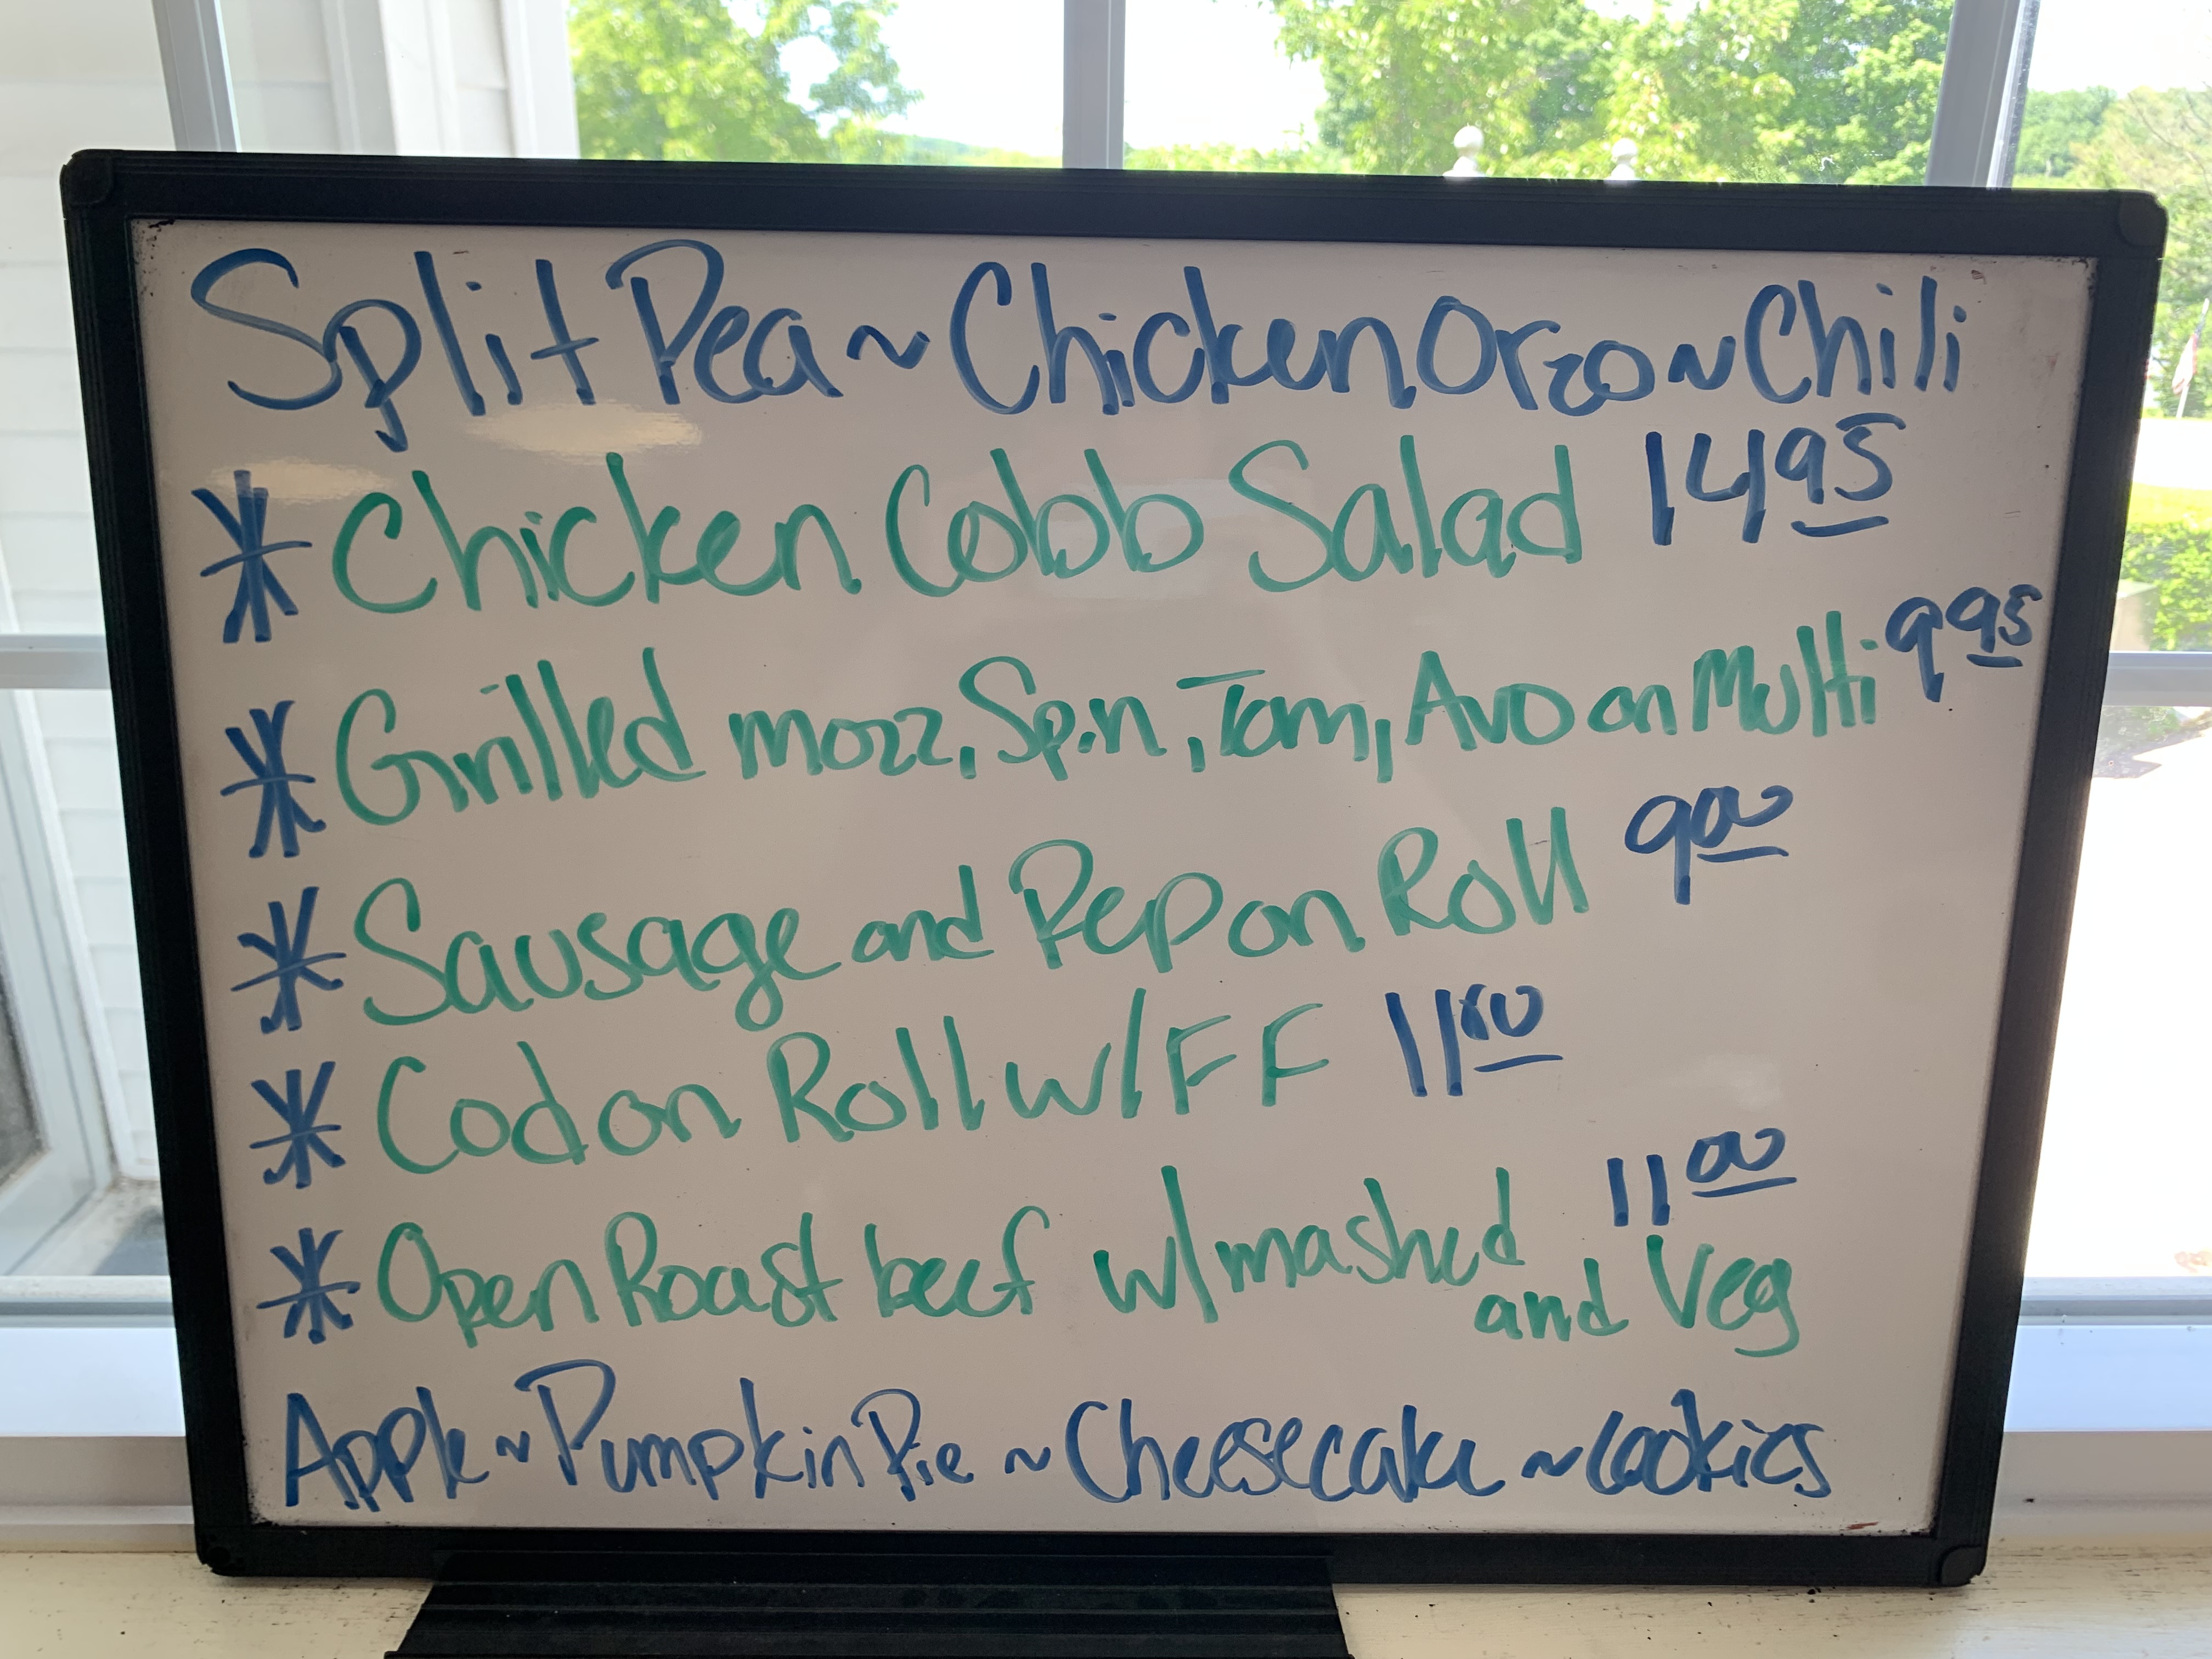 Split Pea ~ Chicken Orzo ~ Chili
* Chicken Cobb Salad 14 95
* Grilled Mozz, Spin, Tom, Avo on Multi 9 95
* Sausage and Pep on Roll 9 00
* Cod on Roll w/FF 11 00
* Open Roast beef w/mashed 11 00
and Veg
Apple ~ Pumpkin Pie ~ Cheesecake ~ Cookies